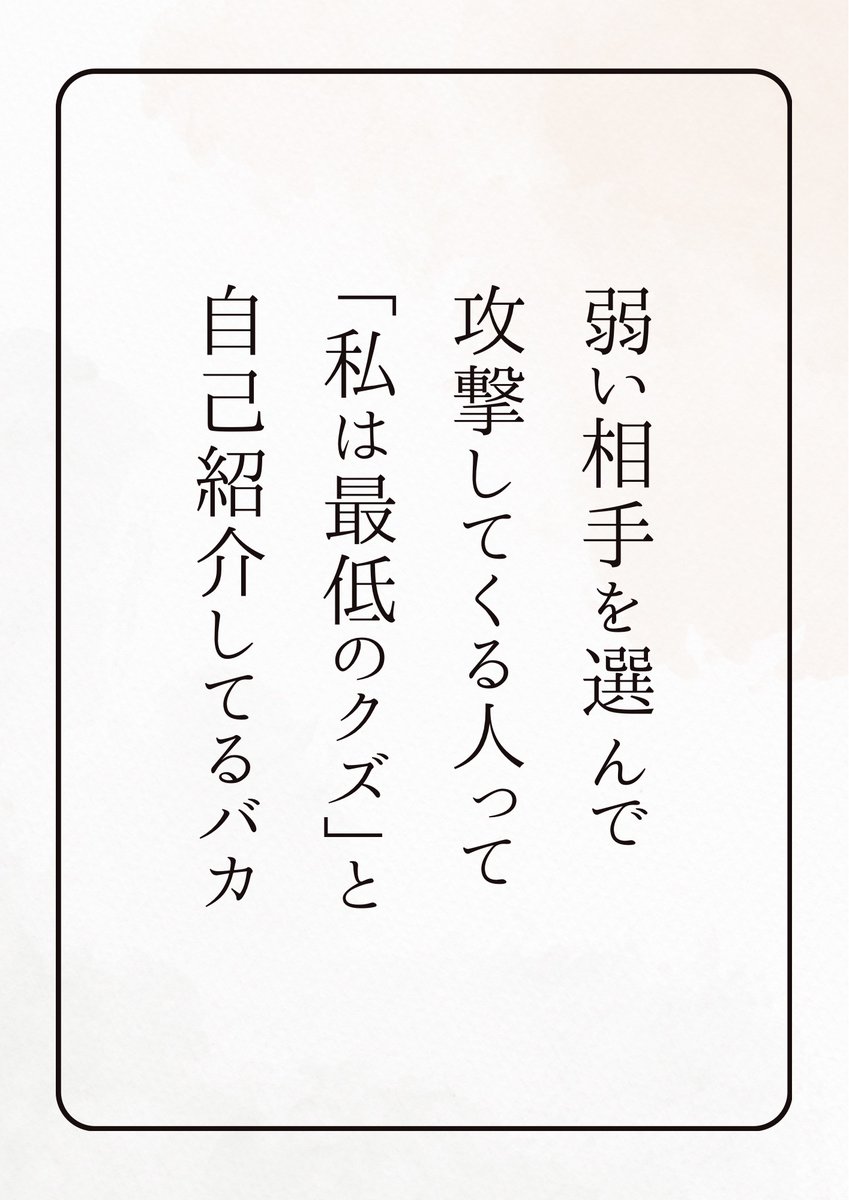 弱い相手を選んで
攻撃してくる人って
「私は最低のクズ」と
自己紹介してるバカ